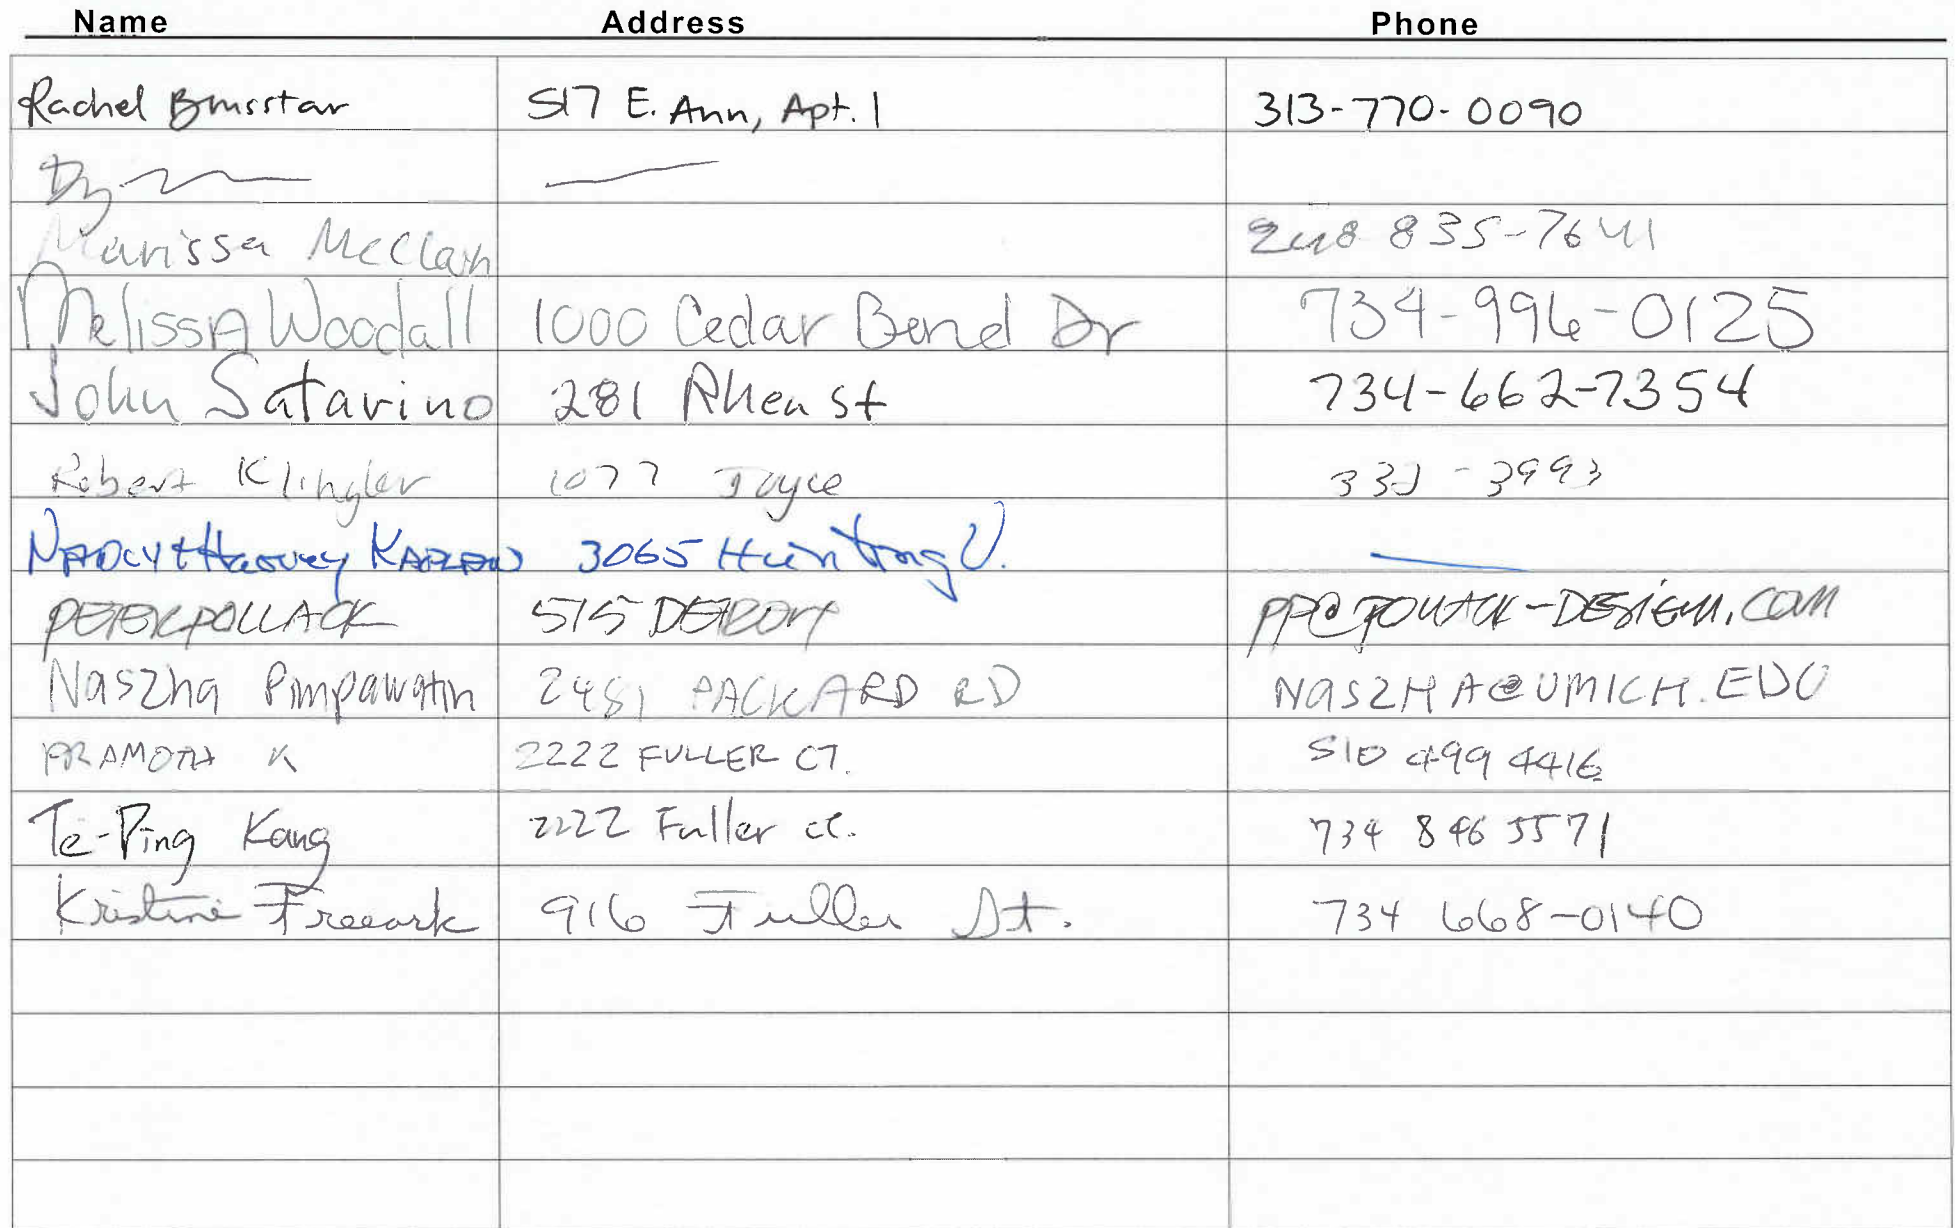 Name Address Phone
Rachel 517 E. Ann, Apt. 1 313-770-0090
Marissa McClan 248 835-7641
Melissa Woodall 1000 Cedar Bend Dr 734-996-0125
John Satarino 281 Rhea St 734-662-7354
Robert Klingler 1077 Joyce 332-3993
Harvey 3065
PETER POLLACK 515 DETROIT PP@POLLACK-DESIGN.COM
Naszha Pimpawatin 2481 PACKARD RD NASZHA@UMICH.EDU
PRAMOTH K 2222 FULLER CT. 510 499 4416
Te-Ping Kang 2222 Fuller ct. 734 846 5571
Kristine Freeark 916 Fuller St. 734 668-0140